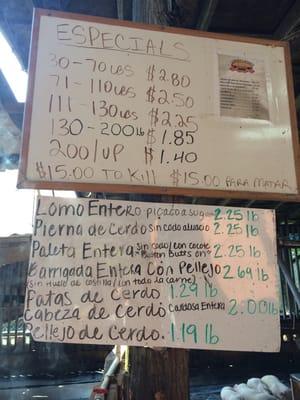 ESPECIALS
30-70 LBS $2.80
71-110 LBS $2.50
111-130 LBS $2.25
130-200 LB $1.85
200/UP $1.40
$15.00 TO KILL $15.00 PARA MATAR
Lomo Entero picado a su gusto 2.25 lb
Pierna de Cerdo sin cado 2.25 lb
Paleta Entera sin cado/con 2.25 lb
Boston Butts on
Barrigada Entera Con Pellejo 2.69 lb
(sin Hueso de costilla/con todo la carne)
Patas de Cerdo 1.29 lb
Cabeza de Cerdo Cardosa Entera 2.00 lb
Pellejo de Cerdo. 1.19 lb